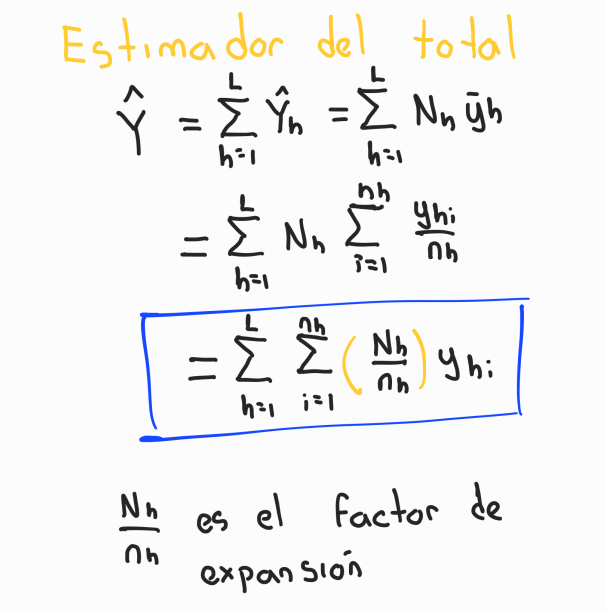 Estimador del total
Ŷ = ∑_{h=1}^{L} Ŷ_h = ∑_{h=1}^{L} N_h ȳ_h
= ∑_{h=1}^{L} N_h ∑_{i=1}^{n_h} y_{hi}/n_h
= ∑_{h=1}^{L} ∑_{i=1}^{n_h} (N_h/n_h) y_{hi}
N_h/n_h es el factor de
expansión